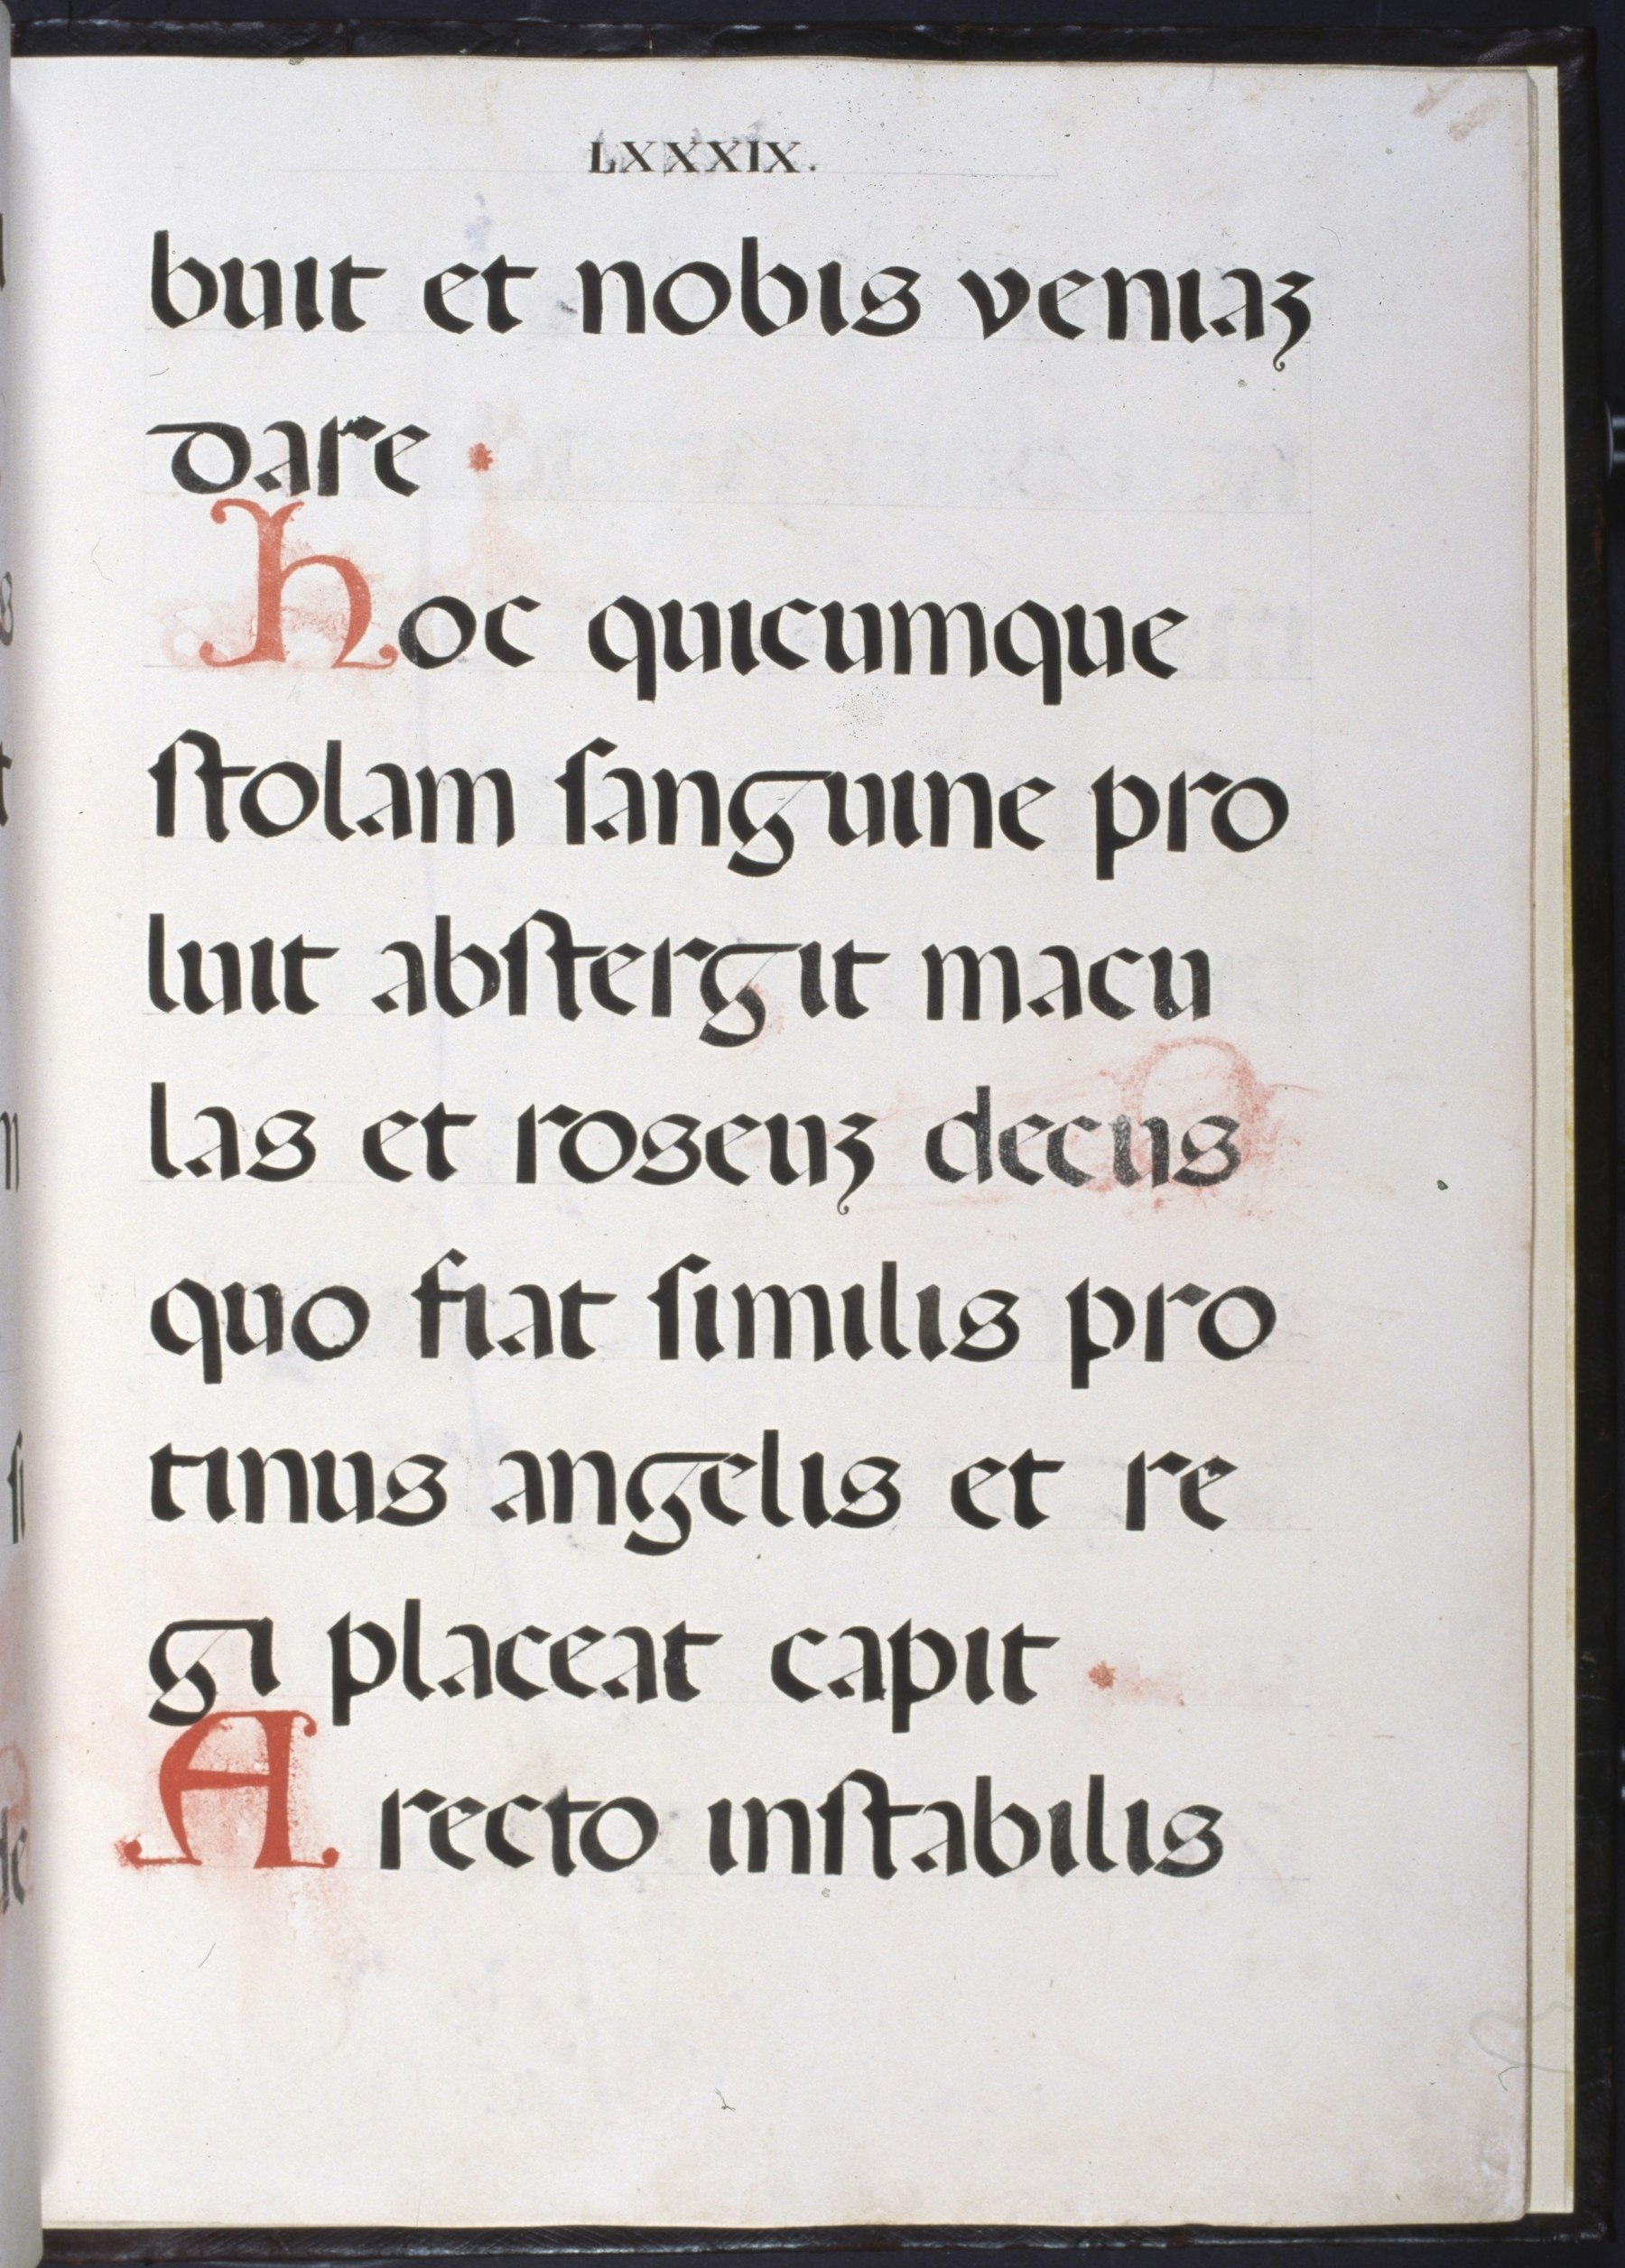 LXXXIX.
buit et nobis veniaꝫ
dare
hoc quicumque
ſtolam ſanguine pro
luit abſtergit macu
las et roseuꝫ decus
quo fiat ſimilis pro
tinus angelis et re
gi placeat capit
A recto inſtabilis